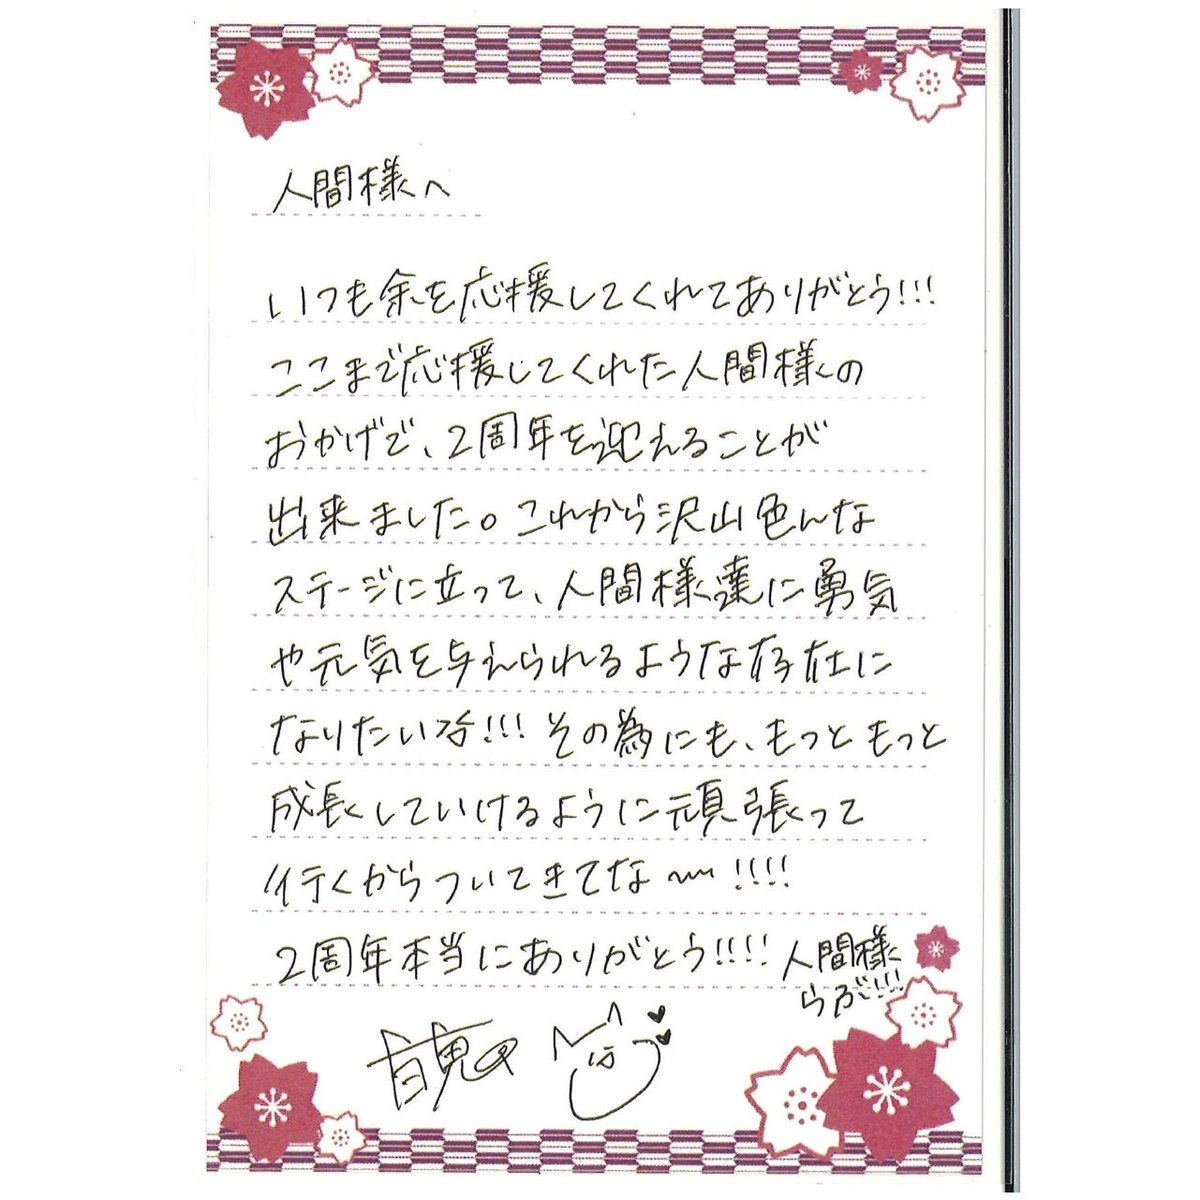 人間様へ
いつも余を応援してくれてありがとう!!!
ここまで応援してくれた人間様の
おかげで、2周年を迎えることが
出来ました。これから沢山色んな
ステージに立って、人間様達に勇気
や元気を与えられるような存在に
なりたい余!!!その為にも、もっともっと
成長していけるように頑張って
行くからついてきてな〜!!!!
2周年本当にありがとう!!!!
人間様
らぶ!!!